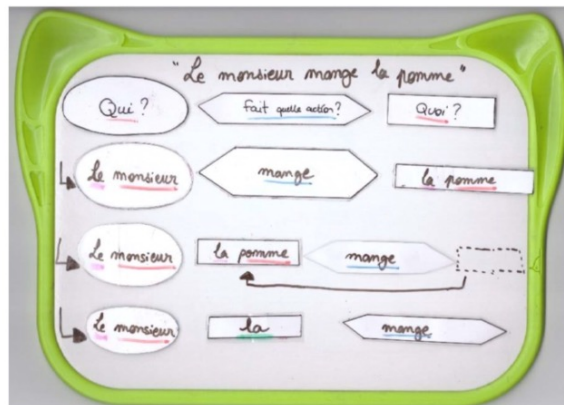 "Le monsieur mange la pomme"
Qui ? Fait quelle action ? Quoi ?
Le monsieur mange la pomme
Le monsieur la pomme mange
Le monsieur la mange